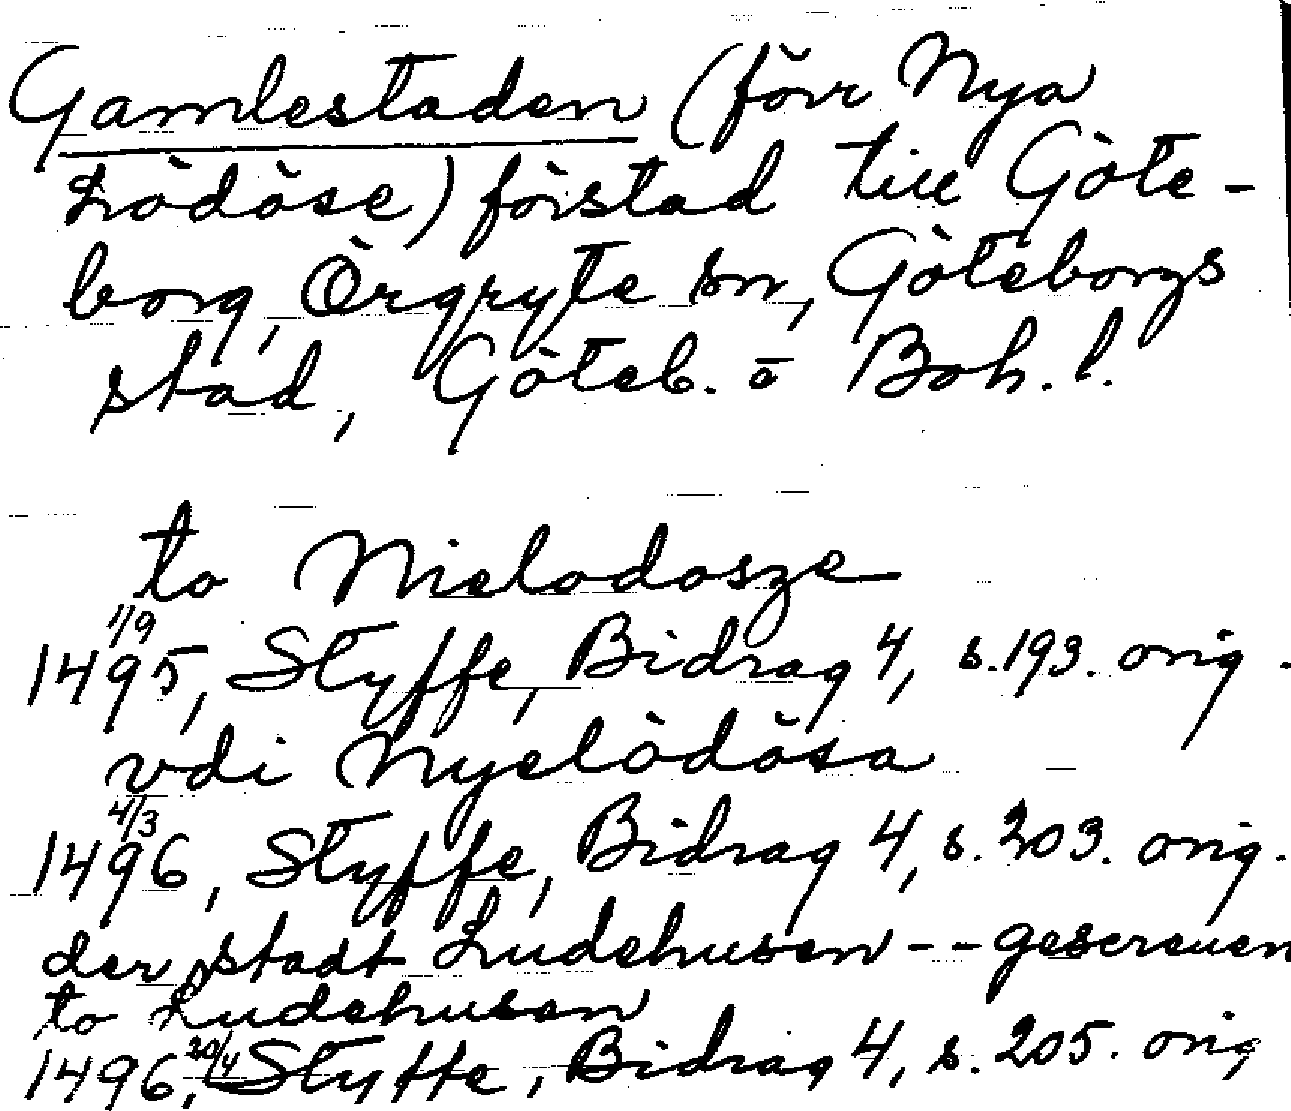 Gamlestaden (förr Nya
Lödöse) förstad till Göte-
borg, Örgryte sn, Göteborgs
stad, Göteb. o Boh. l.
to Nielodosze
1495 1/9, Styffe, Bidrag 4, s. 193. orig.
vdi Nyelödösa
1496 4/3, Styffe, Bidrag 4, s. 203. orig.
der stadt Ludehusen -- gescreuen
to Ludehusen
1496 20/4, Styffe, Bidrag 4, s. 205. orig